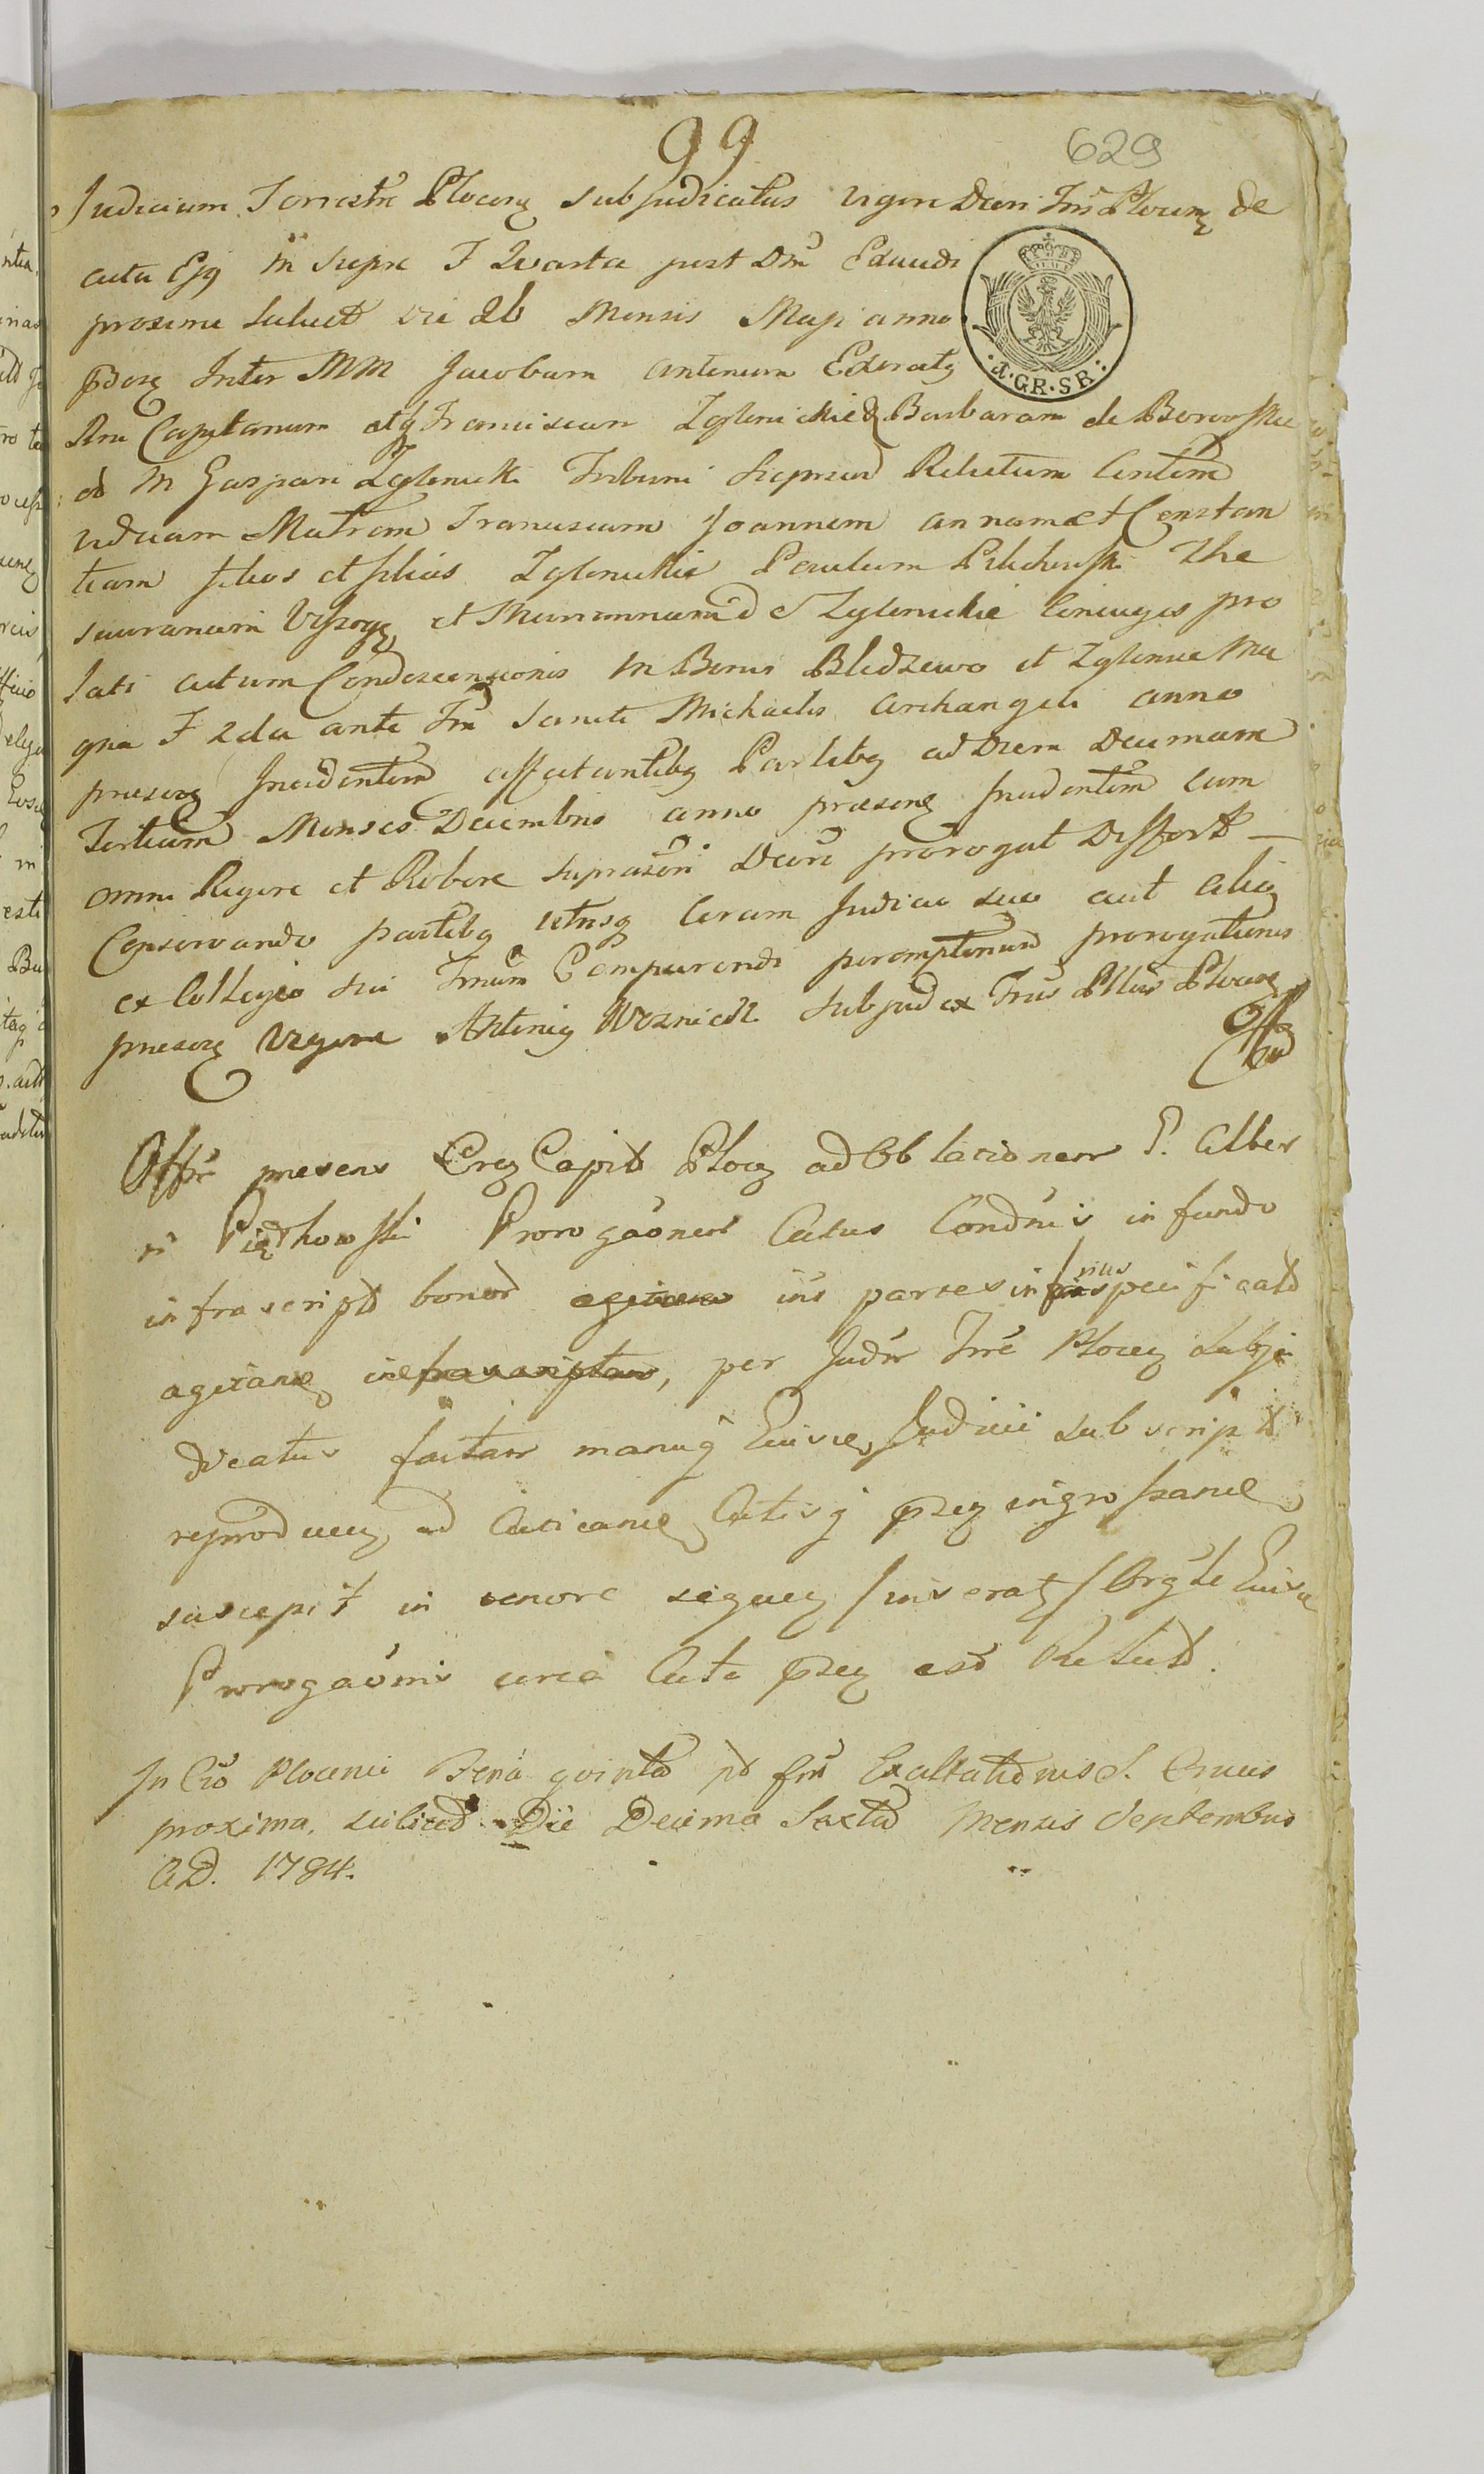 99
629
Judicium Terrestre Plocen subjudicatus vigore Decri Tris Plocen de
actu Ejq in Sieprc F Quarta post Dm Exaudi
proxima scilicet die 26 Mensis Maji anno
pdsen Inter MM Jacobum Antonium Exercitg
Capitanum atq Franciscum Zglenickie & Barbaram de Borowskie
M Gaspari Zglenicki Tribuni Sieprcen Relictam
viduam Matrem Franciscum Joannem annam et Constan
tiam filios et filias Zglenickie Paulum Pilichowski The
saurarium Vyszog et Mariannam de Zglenickie Coniuges pro
lati actum Condescensionis in Bonis Bledzewo et Zglenice Ma
gna F 2da ante Fm Sancti Michaelis Archangeli anno
praesen Incidentem affectantibq Partibq ad Diem Decimam
Tertiam Mensis Decembris anno praesen Incidentem cum
omni Rigore et Robore suprascri Decri prorogat Differt —
Conservando partibq utrisq Coram Judicio suo aut aliq
ex Collegio sui Tmum Comparendi peremptorium prorogationis
praesen vigore Antoniq Woznicki Subjudex Tris Pltus Plocen
Offm praesens Cre Capit Ploc ad Oblationem P. Alber
ti Piętkowski Prorogaonem Actus Condnis in fundo
infrascript bonor inr partes inferius specificatas
agitan, per Judm Tre Plocen Subju
dicatus factam manuq Eiusd Judicii subscript
reproducen ad Acticand Actisq psen ingrossand
suscepit in tenore sequen Inserat Orgle Eiusd
Prorogaonis circa Acta psen est Relict.
In Cro Plocensi Feria quinta pt fm Exaltationis S. Crucis
proxima, scilicet Die Decima Sexta Mensis Septembris
AD. 1784.
4.GR.SR.